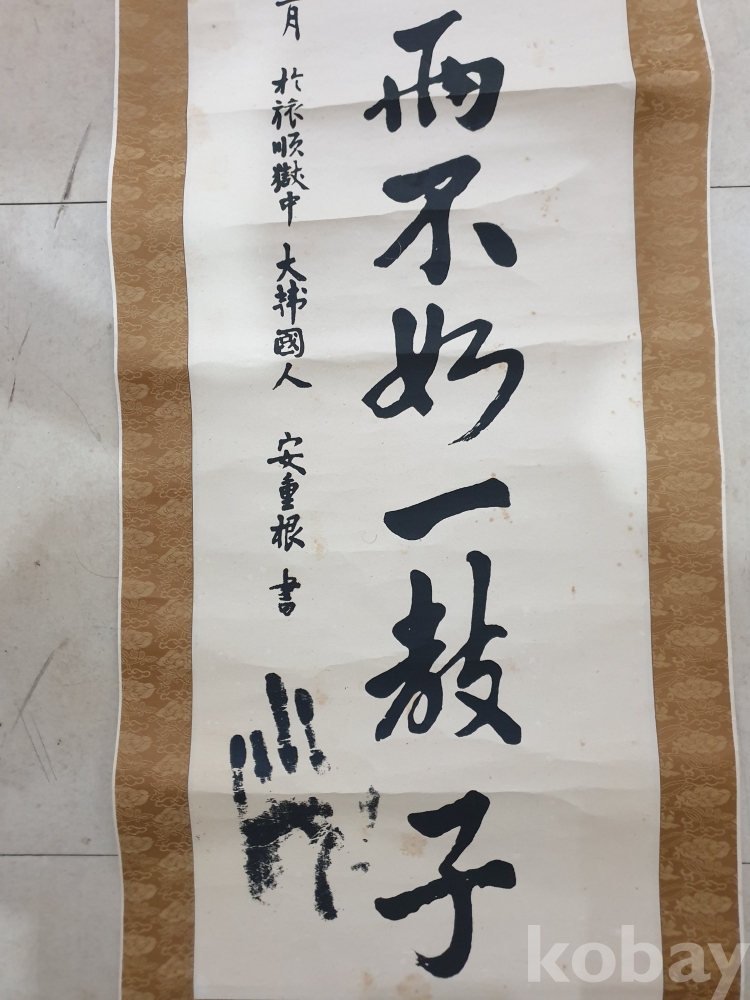 両不如一敎子
月 於旅順獄中 大韓國人 安重根 書
kobay